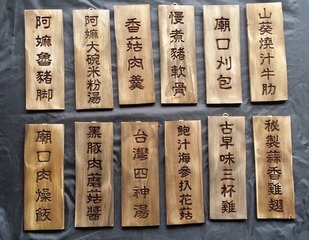 阿嬤魯豬脚
阿嬤大碗米粉湯
香菇肉羹
慢煮豬軟骨
廟口刈包
山葵燒汁牛肋
廟口肉燥飯
黑豚肉蘑菇醬
台灣四神湯
鮑汁海參扒花菇
古早味三杯雞
秘製蒜香雞翅